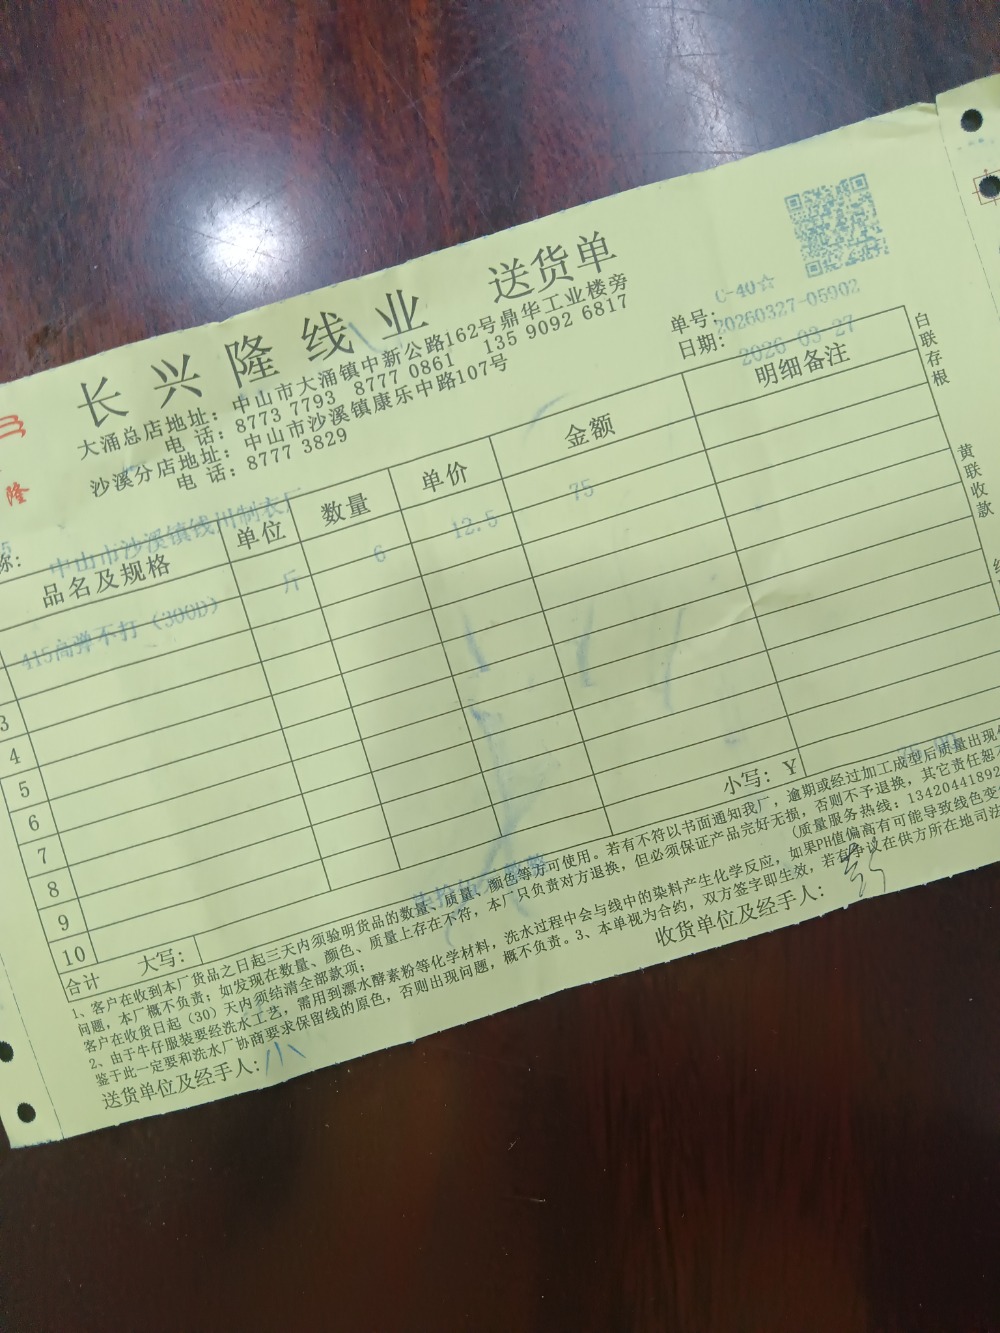 长兴隆线业 送货单
大涌总店地址：中山市大涌镇中新公路162号鼎华工业楼旁
电 话：8773 7793 8777 0861 135 9092 6817
沙溪分店地址：中山市沙溪镇康乐中路107号
电 话：8777 3829
C-40☆
单号：20260327-05902
日期：2026-03-27
称：中山市沙溪镇钱川制衣厂
品名及规格 单位 数量 单价 金额 明细备注
415高弹不打（300D） 斤 6 12.5 75
3
4
5
6
7
8
9
10
合计 大写： 小写：Y 75.00
1、客户在收到本厂货品之日起三天内须验明货品的数量、质量、颜色等方可使用。若有不符以书面通知我厂，逾期或经过加工成型后质量出现
问题，本厂概不负责；如发现在数量、颜色、质量上存在不符，本厂只负责对方退换，但必须保证产品完好无损，否则不予退换，其它责任恕不
客户在收货日起（30）天内须结清全部款项； （质量服务热线：13420441892
2、由于牛仔服装要经洗水工艺，需用到漂水酵素粉等化学材料，洗水过程中会与线中的染料产生化学反应，如果PH值偏高有可能导致线色变
鉴于此一定要和洗水厂协商要求保留线的原色，否则出现问题，概不负责。3、本单视为合约，双方签字即生效，若有争议在供方所在地司法
送货单位及经手人： 收货单位及经手人：
白联存根
黄联收款
隆